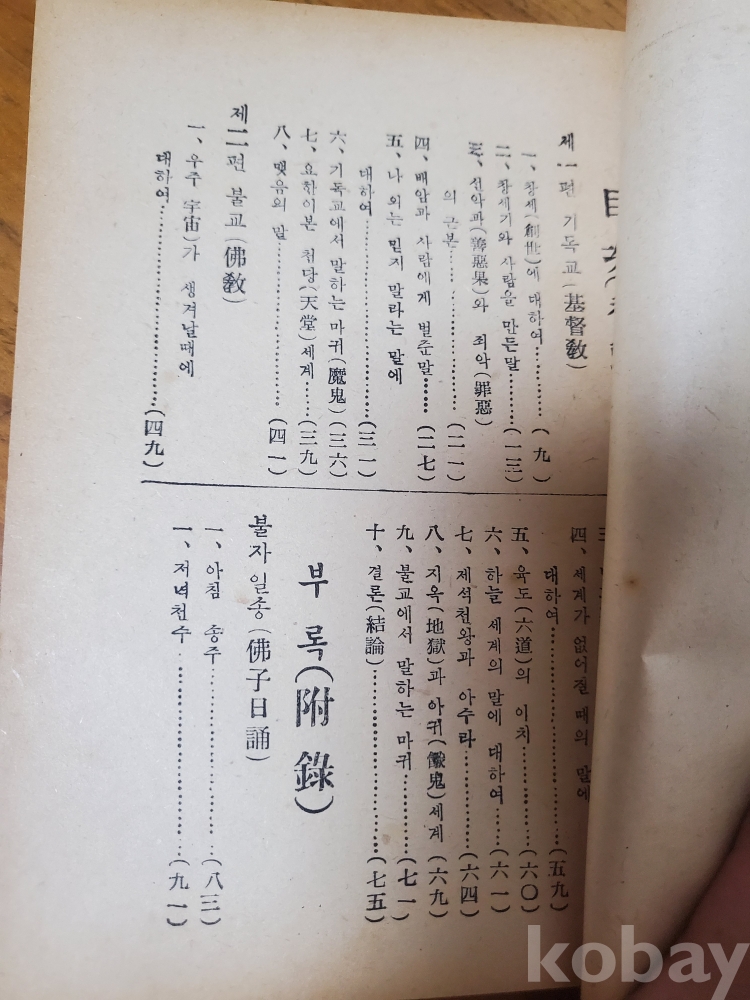 目 次
제一편 기독교(基督敎)
一、창세(創世)에 대하여…………(九)
二、창세기와 사람을 만든말………(一三)
三、선악과(善惡果)와 죄악(罪惡)
의 근본……………(二一)
四、배암과 사람에게 벌준말……(二七)
五、나 외는 믿지 말라는 말에
대하여……………………(三一)
六、기독교에서 말하는 마귀(魔鬼)(三六)
七、요한이본 천당(天堂)세계……(三九)
八、맺음의 말……………………(四一)
제二편 불교(佛敎)
一、우주(宇宙)가 생겨날때에
대하여……………………………(四九)
四、세계가 없어질 때의 말에
대하여……………………………(五九)
五、육도(六道)의 이치……………(六〇)
六、하늘 세계의 말에 대하여……(六一)
七、제석천왕과 아수라……………(六四)
八、지옥(地獄)과 아귀(餓鬼)세계(六九)
九、불교에서 말하는 마귀………(七一)
十、결론(結論)……………………(七五)
부 록(附 錄)
불자일송(佛子日誦)
一、아침 송주……………………(八三)
一、저녁천수……………………(九一)
kobay